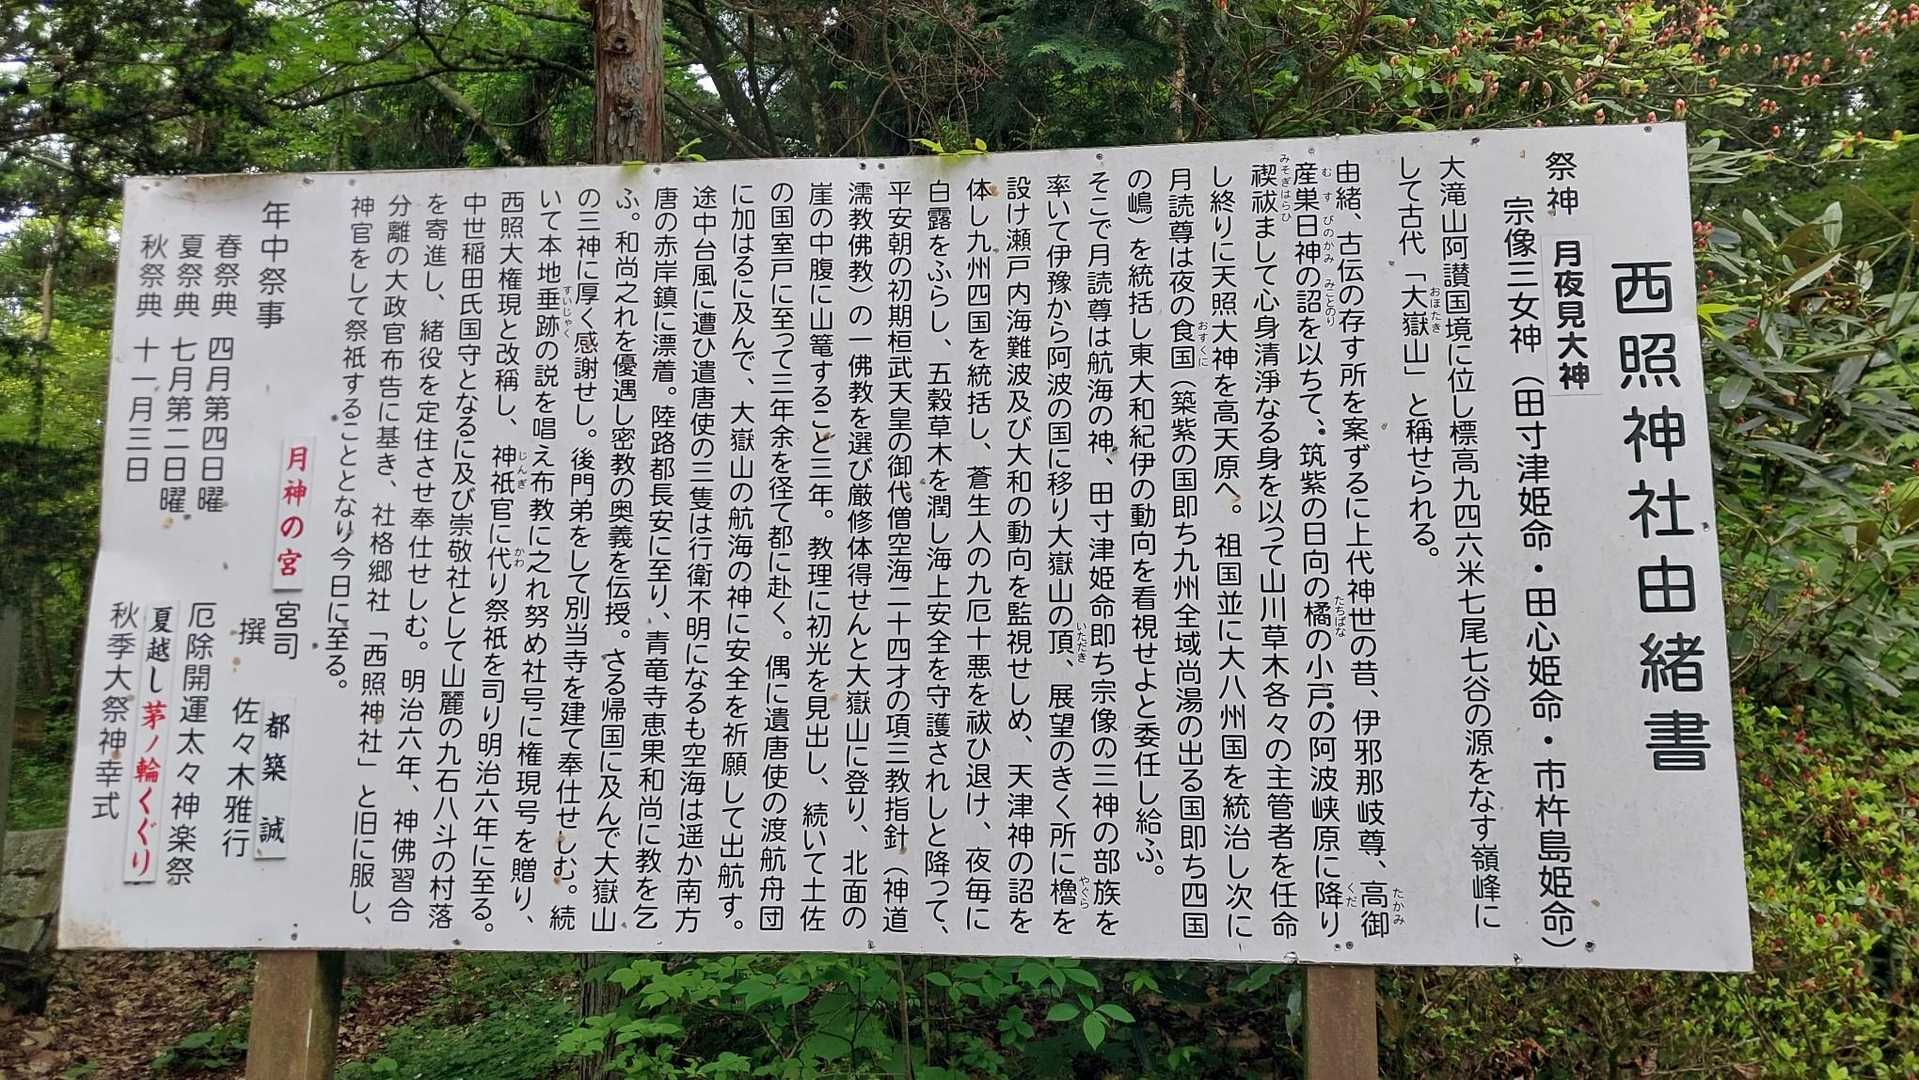 西照神社由緒書
祭神 月夜見大神
宗像三女神（田寸津姫命・田心姫命・市杵島姫命）
大滝山阿讃国境に位し標高九四六米七尾七谷の源をなす嶺峰に
して古代「大嶽山」と稱せられる。
おほたき
由緒、古伝の存す所を案ずるに上代神世の昔、伊邪那岐尊、高御
たかみ
産巣日神の詔を以ちて、筑紫の日向の橘の小戸の阿波峡原に降り
むすびのかみ みことのり たちばな くだ
禊祓まして心身清淨なる身を以って山川草木各々の主管者を任命
みそぎばらひ
し終りに天照大神を高天原へ。祖国並に大八州国を統治し次に
月読尊は夜の食国（築紫の国即ち九州全域尚湯の出る国即ち四国
おすくに
の嶋）を統括し東大和紀伊の動向を看視せよと委任し給ふ。
そこで月読尊は航海の神、田寸津姫命即ち宗像の三神の部族を
率いて伊豫から阿波の国に移り大嶽山の頂、展望のきく所に櫓を
いただき やぐら
設け瀬戸内海難波及び大和の動向を監視せしめ、天津神の詔を
体し九州四国を統括し、蒼生人の九厄十悪を祓ひ退け、夜毎に
白露をふらし、五穀草木を潤し海上安全を守護されしと降って、
平安朝の初期桓武天皇の御代僧空海二十四才の項三教指針（神道
濡教佛教）の一佛教を選び厳修体得せんと大嶽山に登り、北面の
崖の中腹に山篭すること三年。教理に初光を見出し、続いて土佐
の国室戸に至って三年余を径て都に赴く。偶に遺唐使の渡航舟団
に加はるに及んで、大嶽山の航海の神に安全を祈願して出航す。
途中台風に遭ひ遣唐使の三隻は行衛不明になるも空海は遥か南方
唐の赤岸鎮に漂着。陸路都長安に至り、青竜寺恵果和尚に教を乞
ふ。和尚之れを優遇し密教の奥義を伝授。さる帰国に及んで大嶽山
の三神に厚く感謝せし。後門弟をして別当寺を建て奉仕せしむ。続
いて本地垂跡の説を唱え布教に之れ努め社号に権現号を贈り、
すいじゃく
西照大権現と改稱し、神祇官に代り祭祇を司り明治六年に至る。
じんぎ かわ
中世稲田氏国守となるに及び崇敬社として山麓の九石八斗の村落
を寄進し、緒役を定住させ奉仕せしむ。明治六年、神佛習合
分離の大政官布告に基き、社格郷社「西照神社」と旧に服し、
神官をして祭祇することとなり今日に至る。
月神の宮 宮司 都築 誠
撰 佐々木雅行
年中祭事
春祭典 四月第四日曜 厄除開運太々神楽祭
夏祭典 七月第二日曜 夏越し茅ノ輪くぐり
秋祭典 十一月三日 秋季大祭神幸式